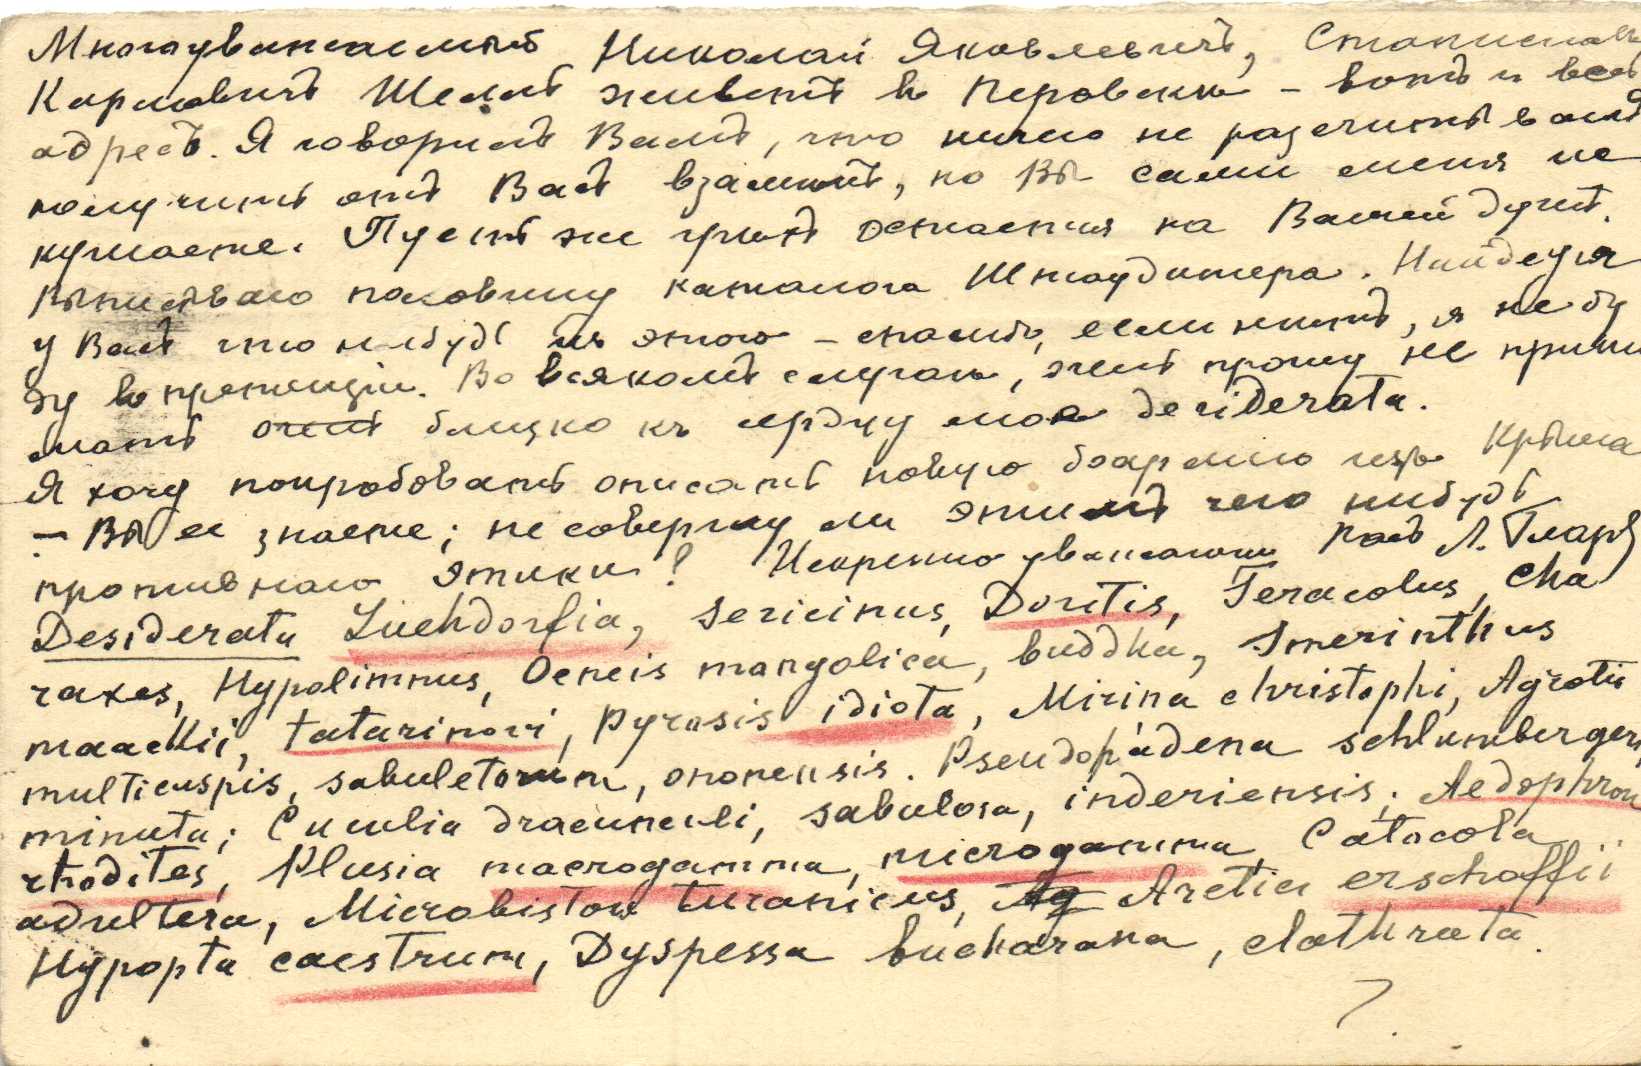 Многоуважаемый Николай Яковлевичъ, Станиславъ
Карловичъ живетъ въ Перовскѣ – вотъ и весь
адресъ. Я говорилъ Вамъ, что ничего не разсчитываю
получить отъ Васъ взамѣнъ, но Вы сами меня не
слушаете. Пусть же грѣхъ останется на Вашей душѣ.
Выписываю половину каталога Штаудингера. Найдется
у Васъ что нибудь изъ этого – спасибо, если нѣтъ, я не бу
ду въ претензіи. Во всякомъ случаѣ, прошу не прини
мать близко къ сердцу мои desiderata.
Я хочу попробовать описать новую боармію изъ Крыма
– Вы ее знаете; не совершу ли этимъ чего нибудь
противнаго этики? Искренно уважающій Васъ Л.
Desiderata Luehdorfia, Sericinus, Doritis, Teracolus, Cha
raxes, Hypolimnus, Oeneis mongolica, buddha, Smerinthus
maackii, tatarinovi, Pyrosis idiota, Mirina christophi, Agrotis
multicuspis, sabuletorum, ononensis. Pseudopadena schlumbergeri,
minuta; Cuculia dracunculi, sabulosa, inderiensis; Aedophron
rhodites, Plusia macrogamma, microgamma, Catocola
adultera, Microbiston turanicus, Ag Arctia erschoffii
Hypopta caestrum, Dyspessa bucharana, clathrata.